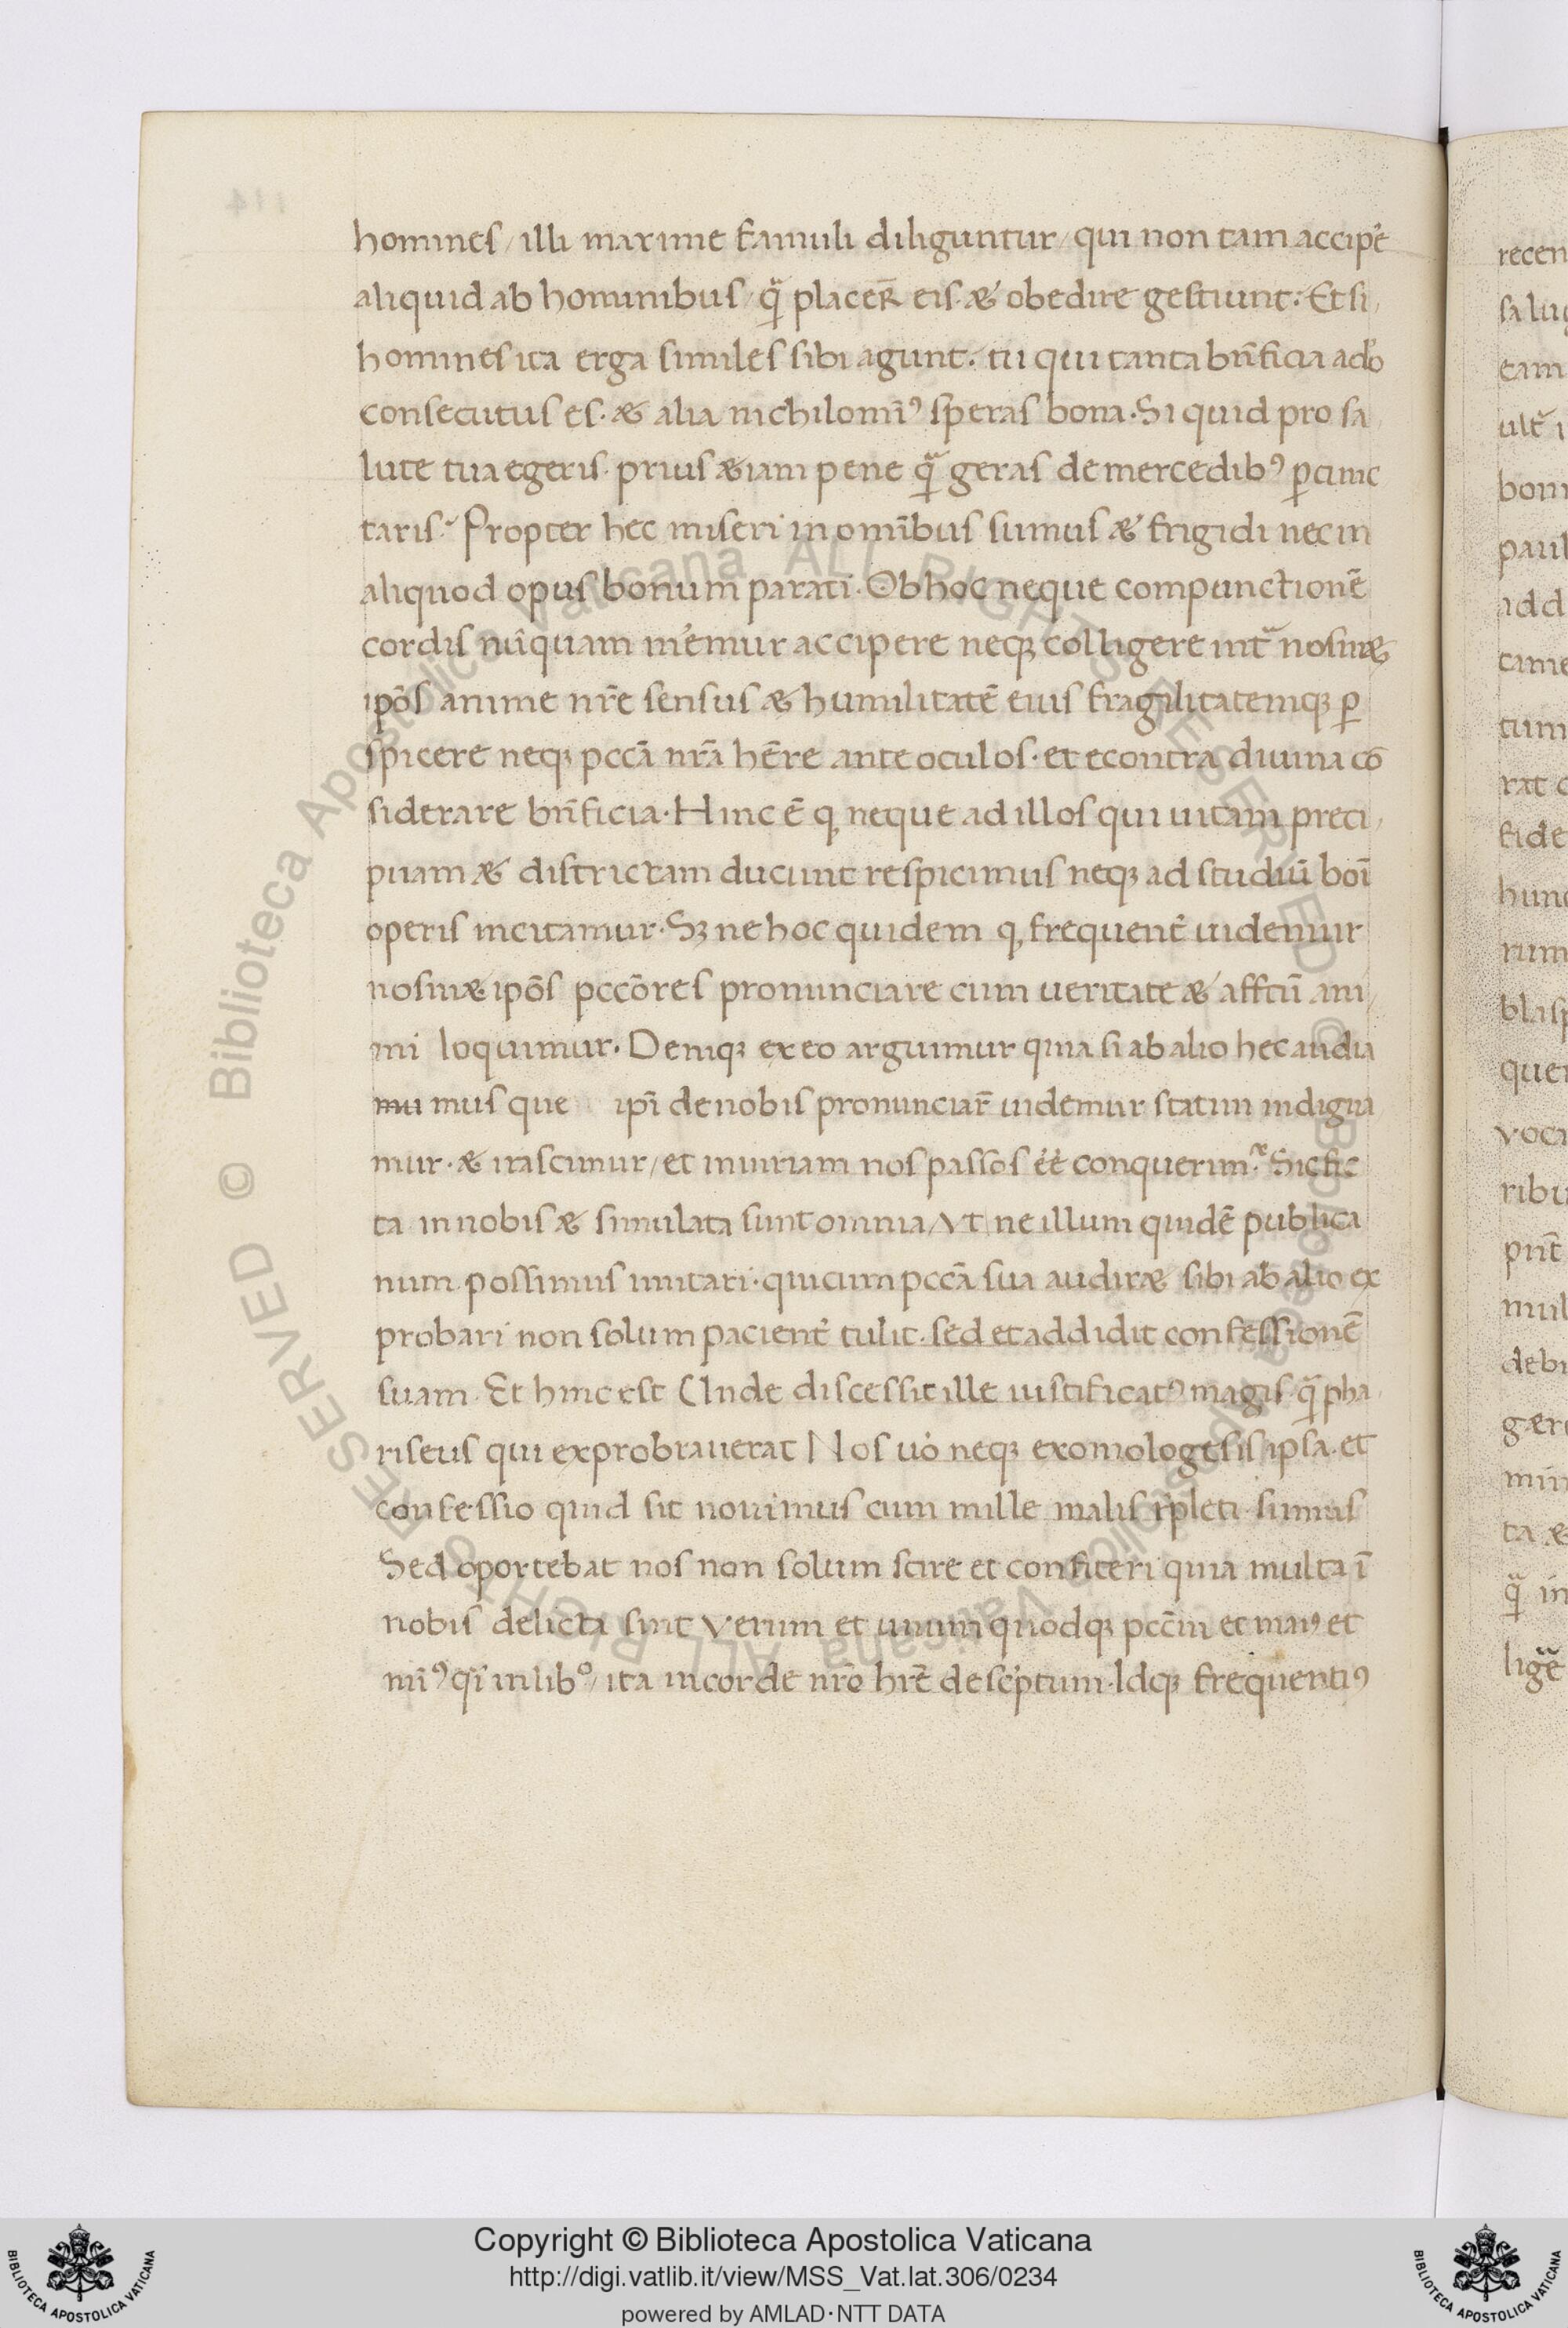 homines / illi maxime famuli diliguntur / qui non tam accipe᷒
aliquid ab hominibus / q̃ placer̄ eis · & obedire gestiunt · Et si
homines ita erga similes sibi agunt · tu qui tanta bn̄ficia a do
consecutus es · & alia nichilomĩꝰ speras bona · Si quid pro sa
lute tua egeris · prius & iam pene q̃ geras de mercedibꝰ ꝑcunc
taris · Propter hec miseri in om̄ibus sumus & frigidi nec in
aliquod opus bonum parati · Ob hoc neque compunctionē
cordis nūquam m̄emur accipere neqꝫ colligere intᷓ nosm&
ipōs anime nr̄e sensus & humilitatē eius fragilitatemqꝫ ꝑ
spicere neqꝫ pccā nrā hēre ante oculos · et econtra diuina cō
siderare bn̄ficia · Hinc ē ꝙ neque ad illos qui uitam preci
puam & districtam ducunt respicimus neqꝫ ad studiū boī
operis incitamur · Sꝫ ne hoc quidem ꝙ frequent᷒ uidemur
nosm& ipōs pccōres pronunciare cum ueritate & affctū ani
mi loquimur · Deniqꝫ ex eo arguimur quia si ab alio hec audia
mu mus que ipī de nobis pronunciar̄ uidemur statim indigna
mur · & irascimur / et iniuriam nos passos eē conquerim᷒ · Sic fic
ta in nobis & simulata sunt omnia / Vt ne illum quidē publica
num possimus imitari · qui cum pccā sua audir& sibi ab alio ex
probari non solum pacient᷒ tulit · sed et addidit confessionē
suam · Et hinc est Unde discessit ille iustificatꝰ magis q̃ pha
riseus qui exprobrauerat Nos uo᷒ neqꝫ exomologesis ipsa · et
confessio quid sit nouimus cum mille malis r̄pleti sumus
Sed oportebat nos non solum scire et confiteri quia multa ī
nobis delicta sint Verum et unum quodqꝫ pccm̄ et maiꝰ et
mīꝰ q̄i in libº / ita in corde nrō hr̄e desc᷒ptum · Idqꝫ frequentiꝰ
recen
salu
eam
ultᷓ i
boni
paul
add
time
tum
rat c
fide
hunc
rum
blasp
quer
voca
ribu
pn̄t
mul
debi
g&r
min
ta &
q̃ in
ligē
Copyright © Biblioteca Apostolica Vaticana
http://digi.vatlib.it/view/MSS_Vat.lat.306/0234
powered by AMLAD·NTT DATA
BIBLIOTECA APOSTOLICA VATICANA
BIBLIOTECA APOSTOLICA VATICANA